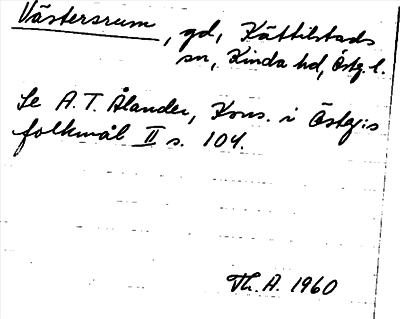 Västersrum, gd, Kättilstads
sn, Kinda hd, Östg. l.
Se A. T. Ålander, Kons. i Östg:s
folkmål II s. 104.
Th. A. 1960